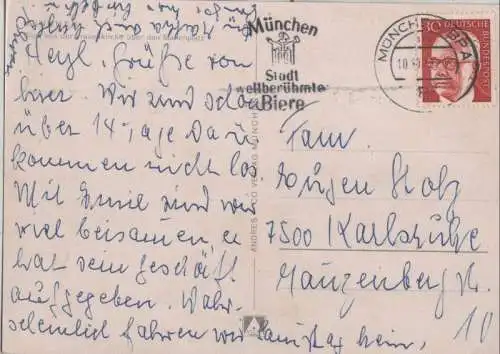 München
Stadt
weltberühmter
Biere
MÜNCHEN
DEUTSCHE
BUNDESPOST
30
Herzl. Grüße von
hier. Wir sind schon
über 14 Tage da u.
kommen nicht los.
Mit Emil sind wir
viel beisamen, er
hat sein Geschäft
aufgegeben. Wahr-
scheinlich fahren wir Samstag heim,
Fam.
Eugen Holz
7500 Karlsruhe
10
ANDRES + CO VERLAG MÜNCHEN